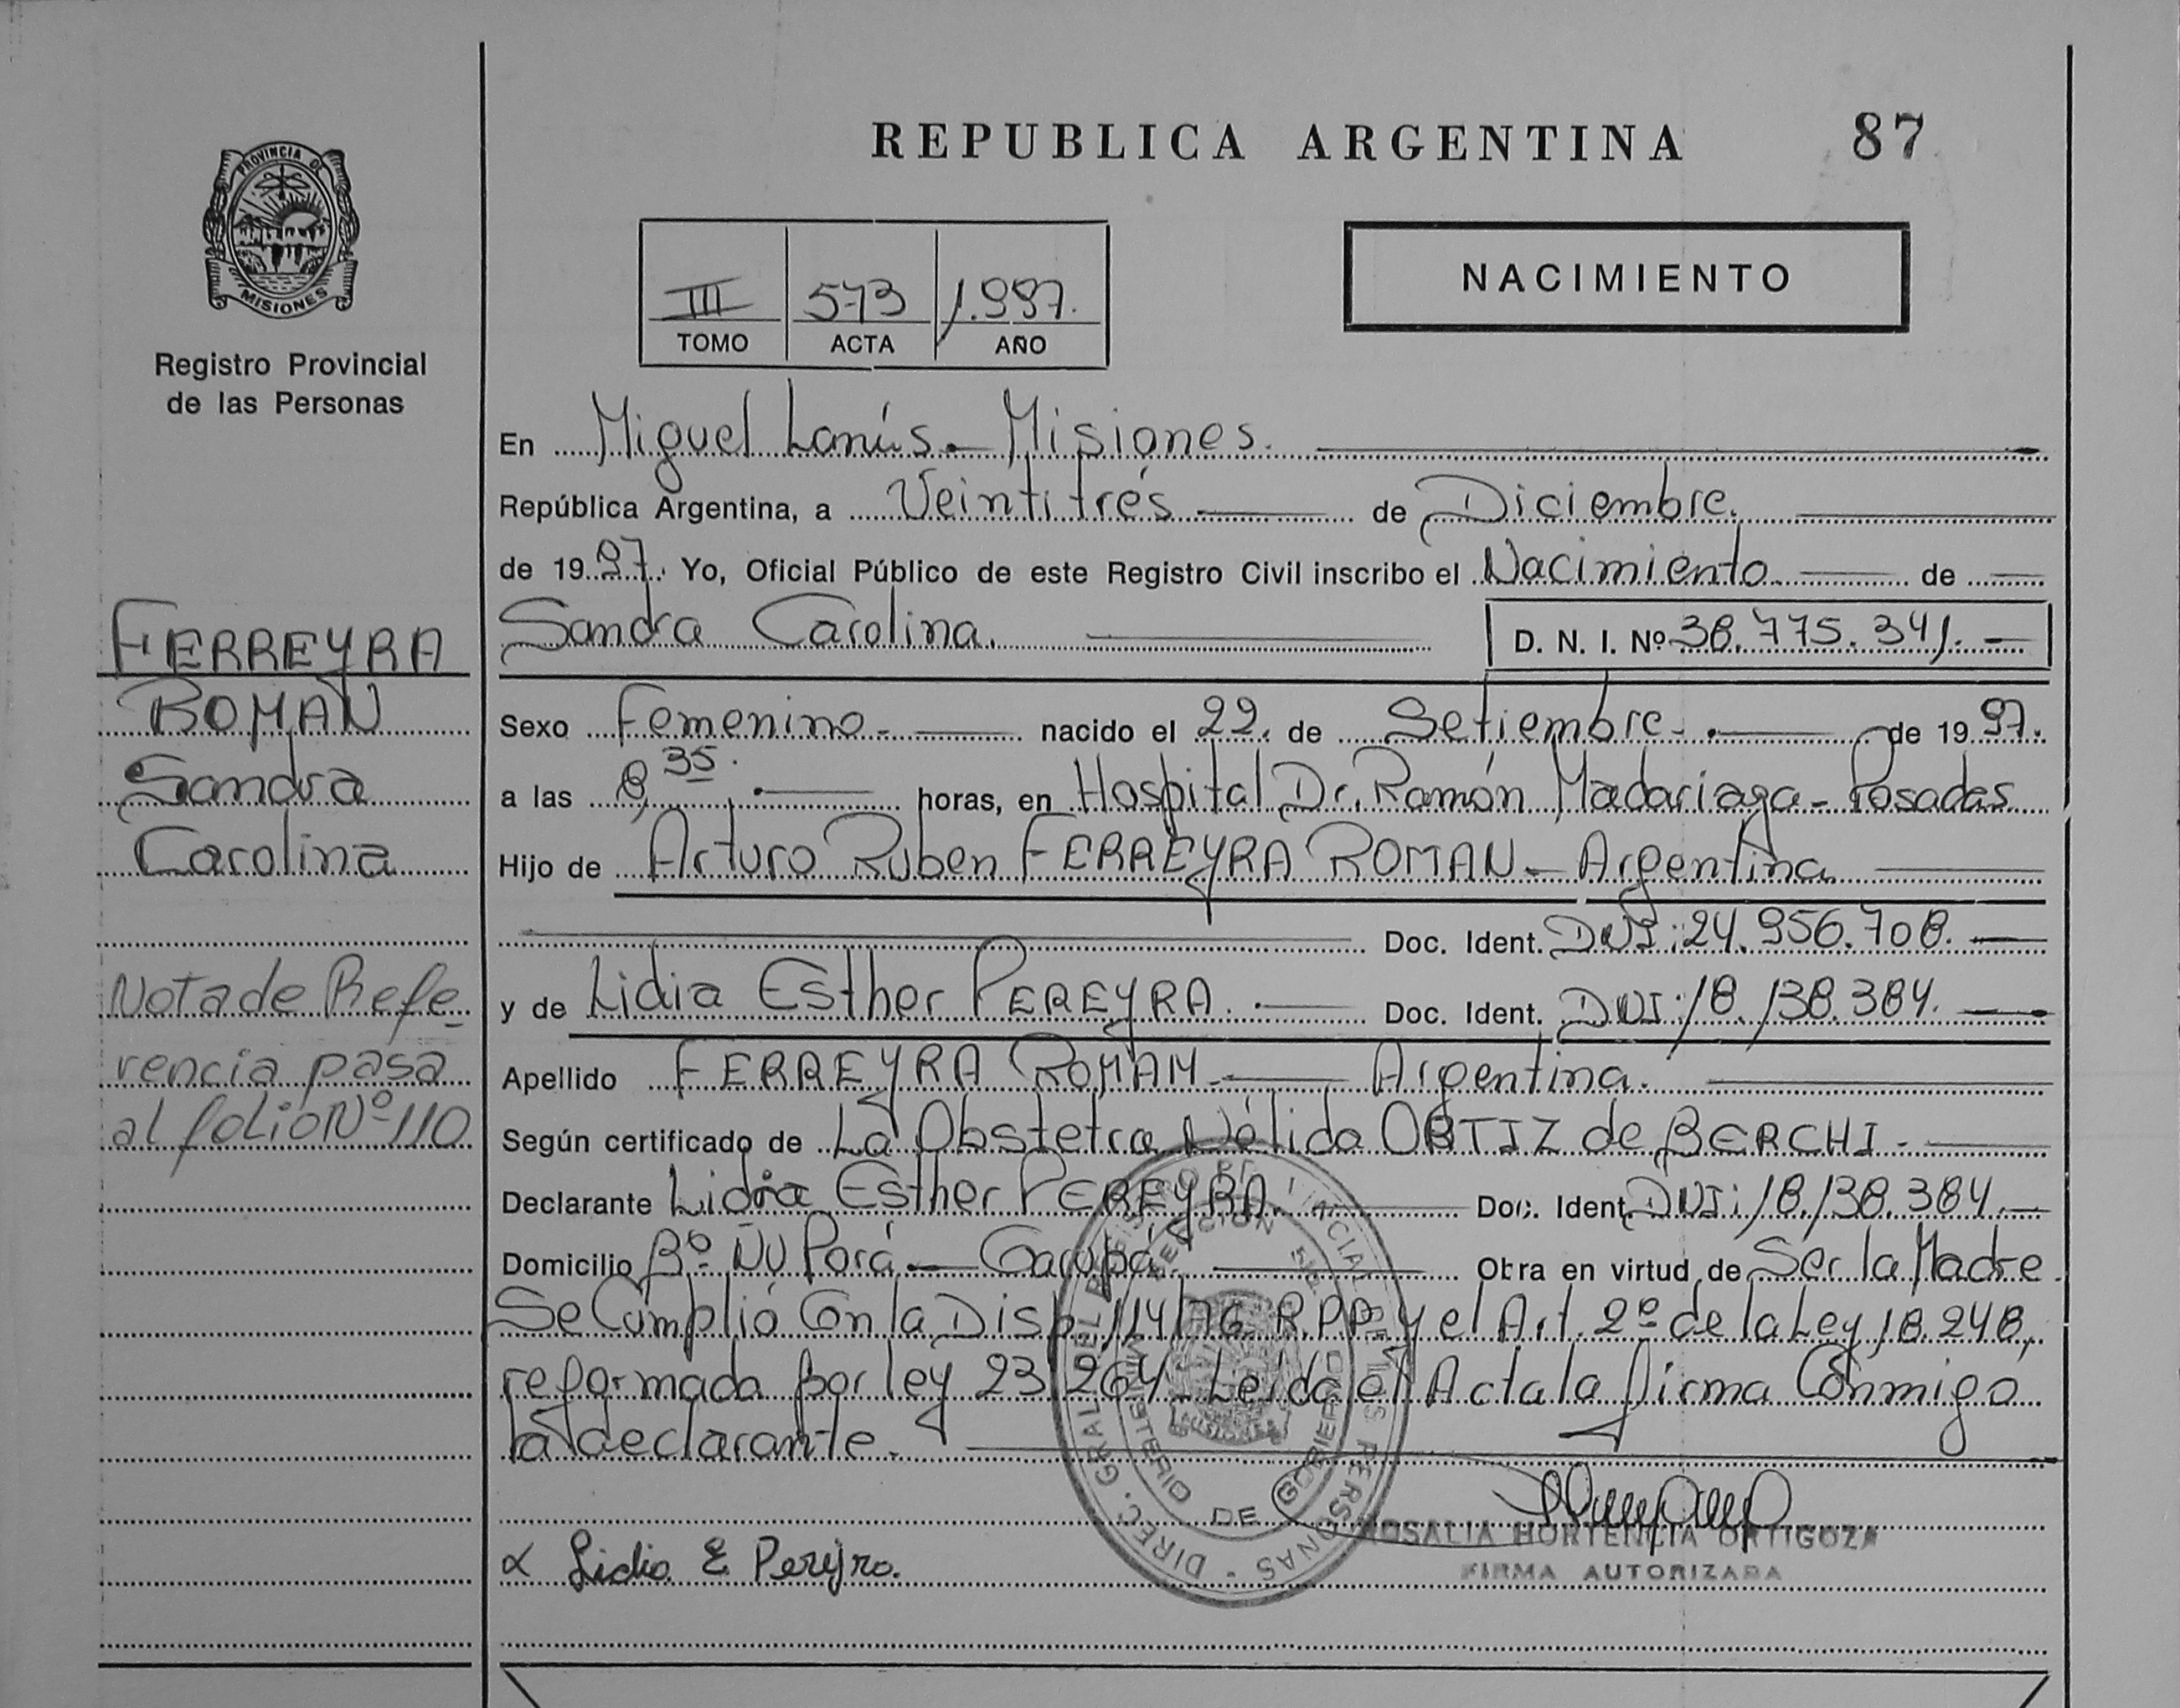 REPUBLICA ARGENTINA 87
PROVINCIA DE
MISIONES
Registro Provincial
de las Personas
III 573 1.997.
TOMO ACTA AÑO
NACIMIENTO
En Miguel Lanús - Misiones.
República Argentina, a Veintitrés de Diciembre.
de 1997. Yo, Oficial Público de este Registro Civil inscribo el Nacimiento de
Sandra Carolina. D. N. I. Nº 38.775.341.
FERREYRA
ROMAN
Sandra
Carolina
Sexo Femenino - nacido el 22. de Setiembre - de 1997.
a las 8,35. horas, en Hospital Dr. Ramón Madariaga - Posadas
Hijo de Arturo Ruben FERREYRA ROMAN - Argentina
Doc. Ident. DNI: 24.956.708.
y de Lidia Esther PEREYRA. Doc. Ident. DNI: 18.138.384.
Apellido FERREYRA ROMAN - Argentina.
Según certificado de La Obstetra Nélida ORTIZ de BERCHI -
Declarante Lidia Esther PEREYRA. Doc. Ident. DNI: 18.138.384.
Domicilio Bº Ñu Porá - Garupá. Obra en virtud de Ser la Madre.
Se Cumplió Con la Disp. 114/76 R.P.P. y el Art. 2º de la Ley 18.248,
reformada por ley 23.264 - Leída el Acta la firma Conmigo
la declarante.
Nota de Refe-
rencia pasa
al folio Nº 110
DIREC. GRAL DEL REGISTRO PROVINCIAL DE LAS PERSONAS -
MINISTERIO DE GOBIERNO
Lidia E Pereyra.
ROSALIA HORTENCIA ORTIGOZA
FIRMA AUTORIZADA